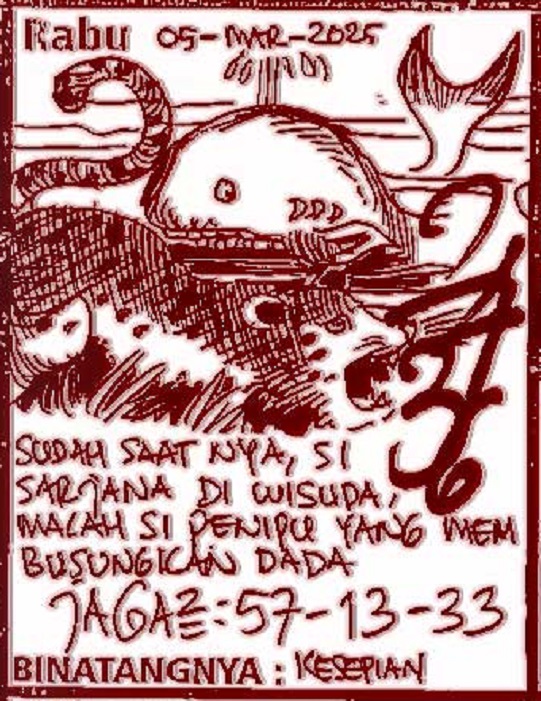 Rabu 05-MAR-2025
DDD
SUDAH SAAT NYA, SI
SARJANA DI WISUDA,
MALAH SI PENIPU YANG MEM
BUSUNGKAN DADA
JAGA2: 57-13-33
BINATANGNYA : KESEPIAN